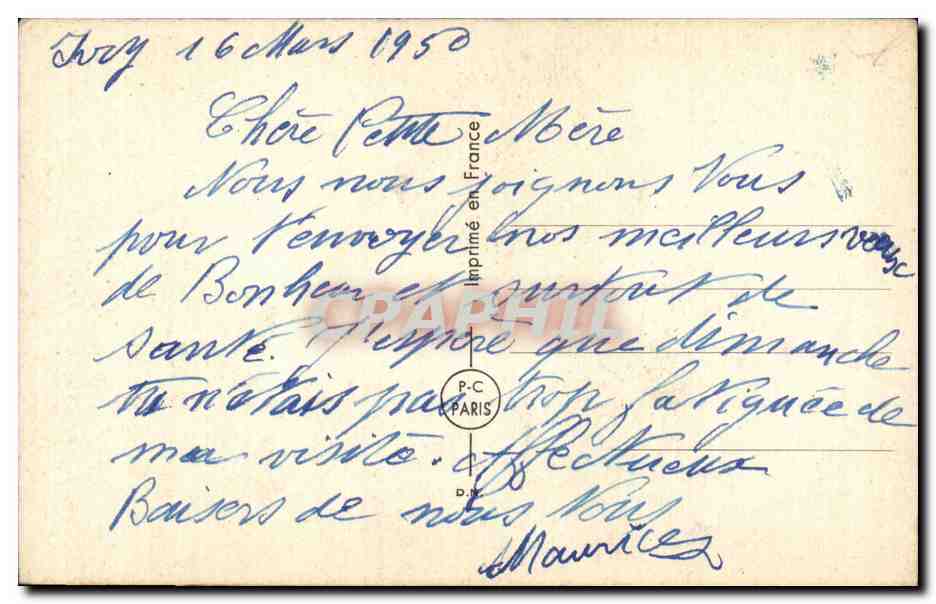 Ivry 16 Mars 1950
Chère Petite Mère
Nous nous joignons Vous
pour t'envoyer nos meilleurs vœux
de Bonheur et surtout de
santé. J'espère que dimanche
tu n'étais pas trop fatiguée de
ma visite. Affectueux
Baisers de nous Vous
Maurice
Imprimé en France
CPAPHIL
P-C
PARIS
D.N.